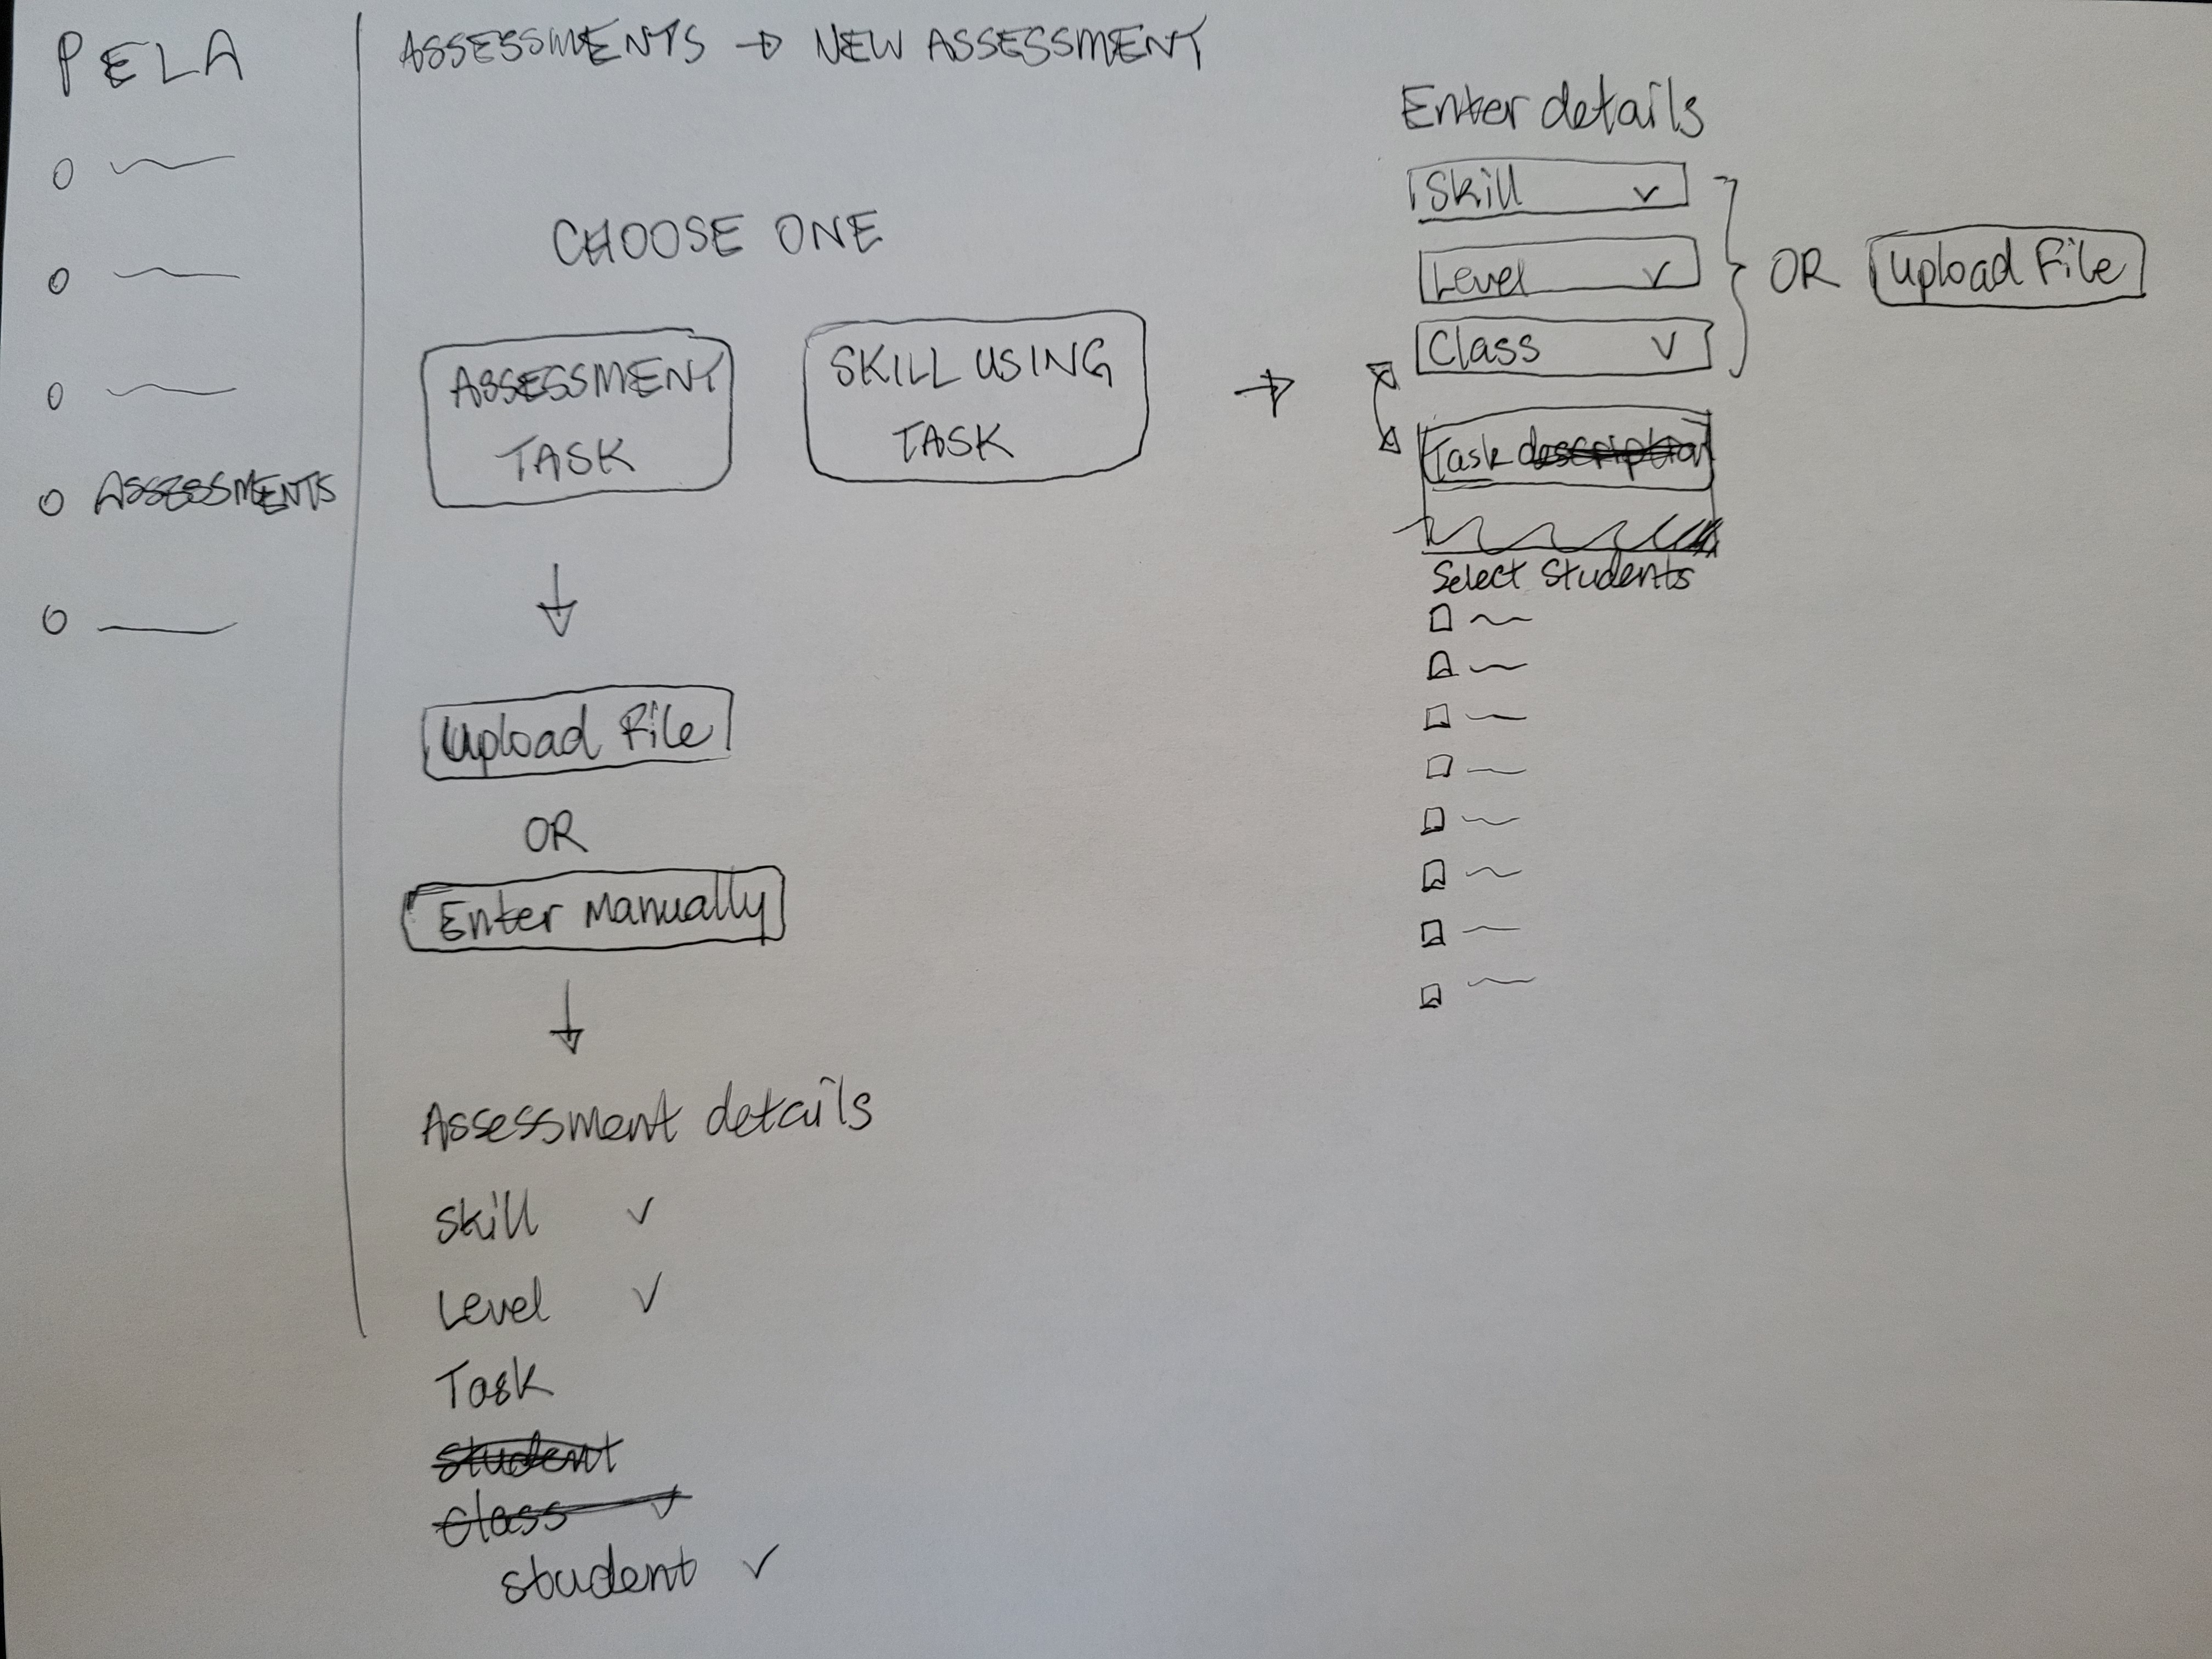 PELA
ASSESSMENTS
ASSESSMENTS → NEW ASSESSMENT
CHOOSE ONE
ASSESSMENT
TASK
SKILL USING
TASK
Upload File
OR
Enter Manually
Assessment details
Skill
Level
Task
Student
Class
Student
Enter details
Skill
Level
Class
OR Upload File
Task description
Select Students